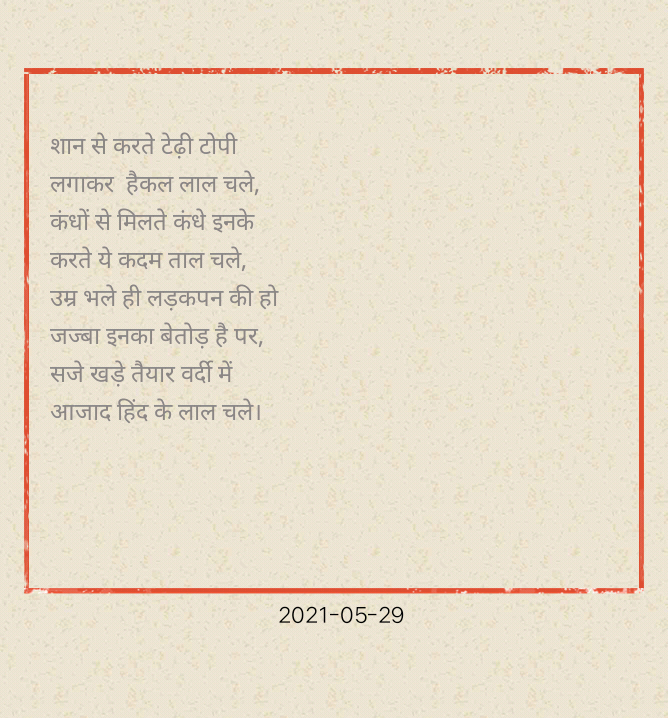 शान से करते टेढ़ी टोपी
लगाकर  हैकल लाल चले,
कंधों से मिलते कंधे इनके
करते ये कदम ताल चले,
उम्र भले ही लड़कपन की हो
जज्बा इनका बेतोड़ है पर,
सजे खड़े तैयार वर्दी में
आजाद हिंद के लाल चले।
2021-05-29